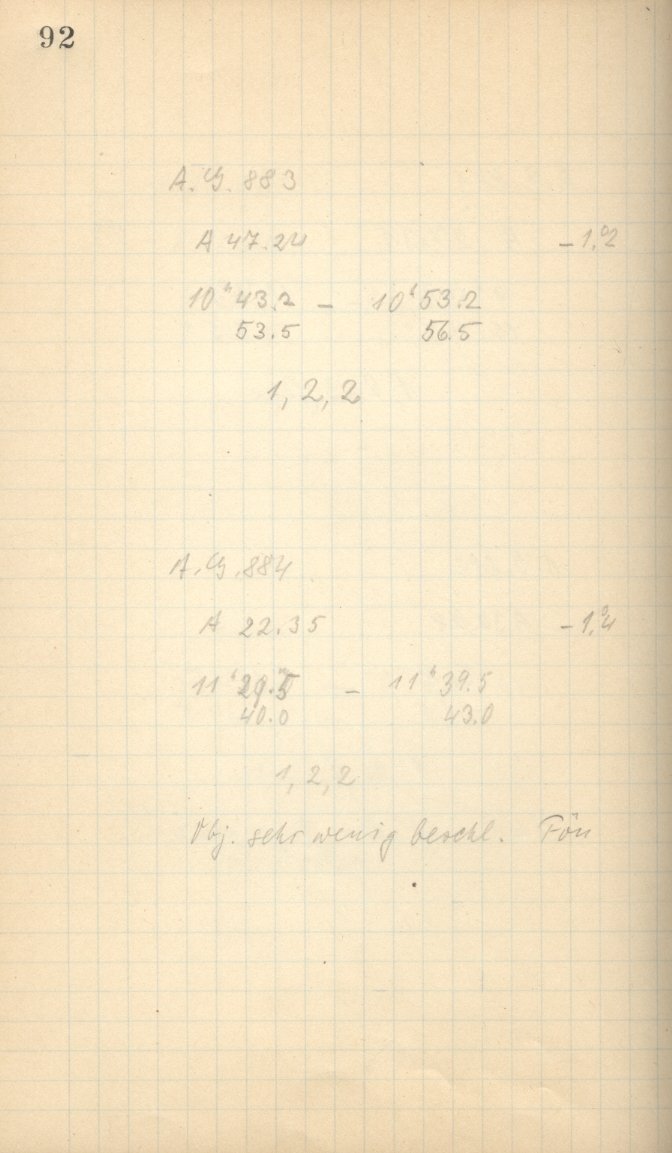 92
A.G. 883
A 47.24 −1.°2
10ʰ43.2 – 10ʰ53.2
53.5 56.5
1, 2, 2
A.G. 884
A 22.35 −1.°4
11ʰ29.5 – 11ʰ39.5
40.0 43.0
1, 2, 2
Obj. sehr wenig beschl. Fön